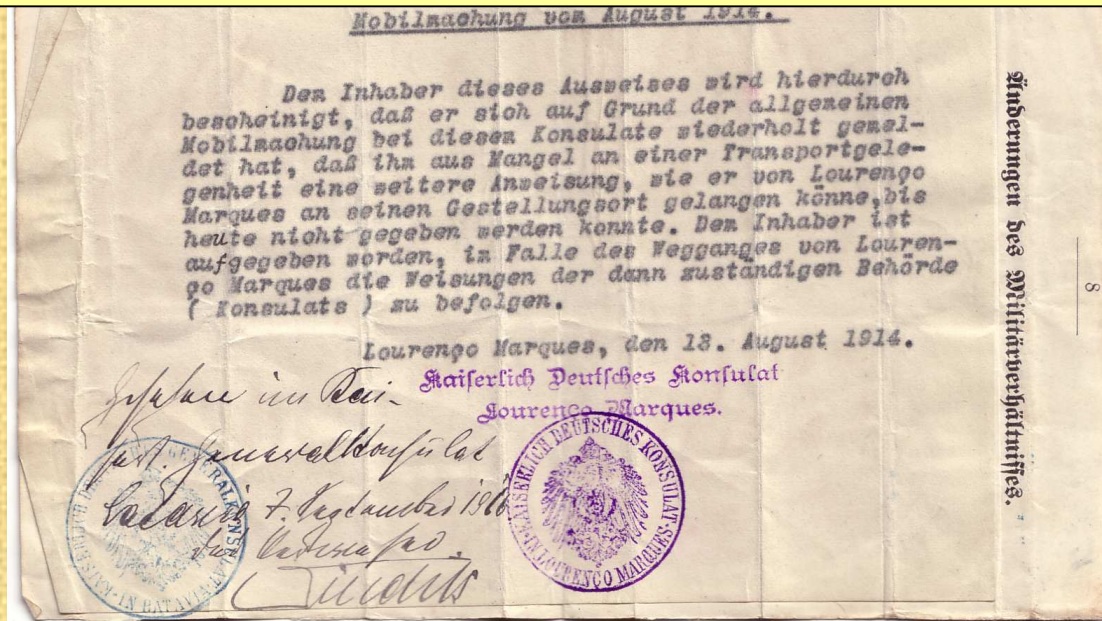 Mobilmachung vom August 1914.
Dem Inhaber dieses Ausweises wird hierdurch
bescheinigt, daß er sich auf Grund der allgemeinen
Mobilmachung bei diesem Konsulate wiederholt gemel-
det hat, daß ihm aus Mangel an einer Transportgele-
genheit eine weitere Anweisung, wie er von Lourenço
Marques an seinen Gestellungsort gelangen könne,bis
heute nicht gegeben werden konnte. Dem Inhaber ist
aufgegeben worden, im Falle des Wegganges von Louren-
ço Marques die Weisungen der dann zuständigen Behörde
( Konsulats ) zu befolgen.
Lourenço Marques, den 13. August 1914.
Kaiserlich Deutsches Konsulat
Lourenço Marques.
KAISERLICH DEUTSCHES KONSULAT·IN LOURENÇO MARQUES·
Gesehen im Kai-
serl. Generalkonsulat
Batavia 7. September 1916
KAISERLICH DEUTSCHES GENERALKONSULAT·IN BATAVIA·
Änderungen des Militärverhältnisses.
8